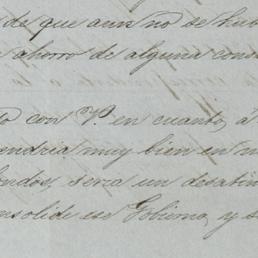 de que aun no se hub
ahorro de alguna cons
to con V. en cuanto á
endria muy bien en
fondos, seria un desatin
nsolide ese Gobierno, y s